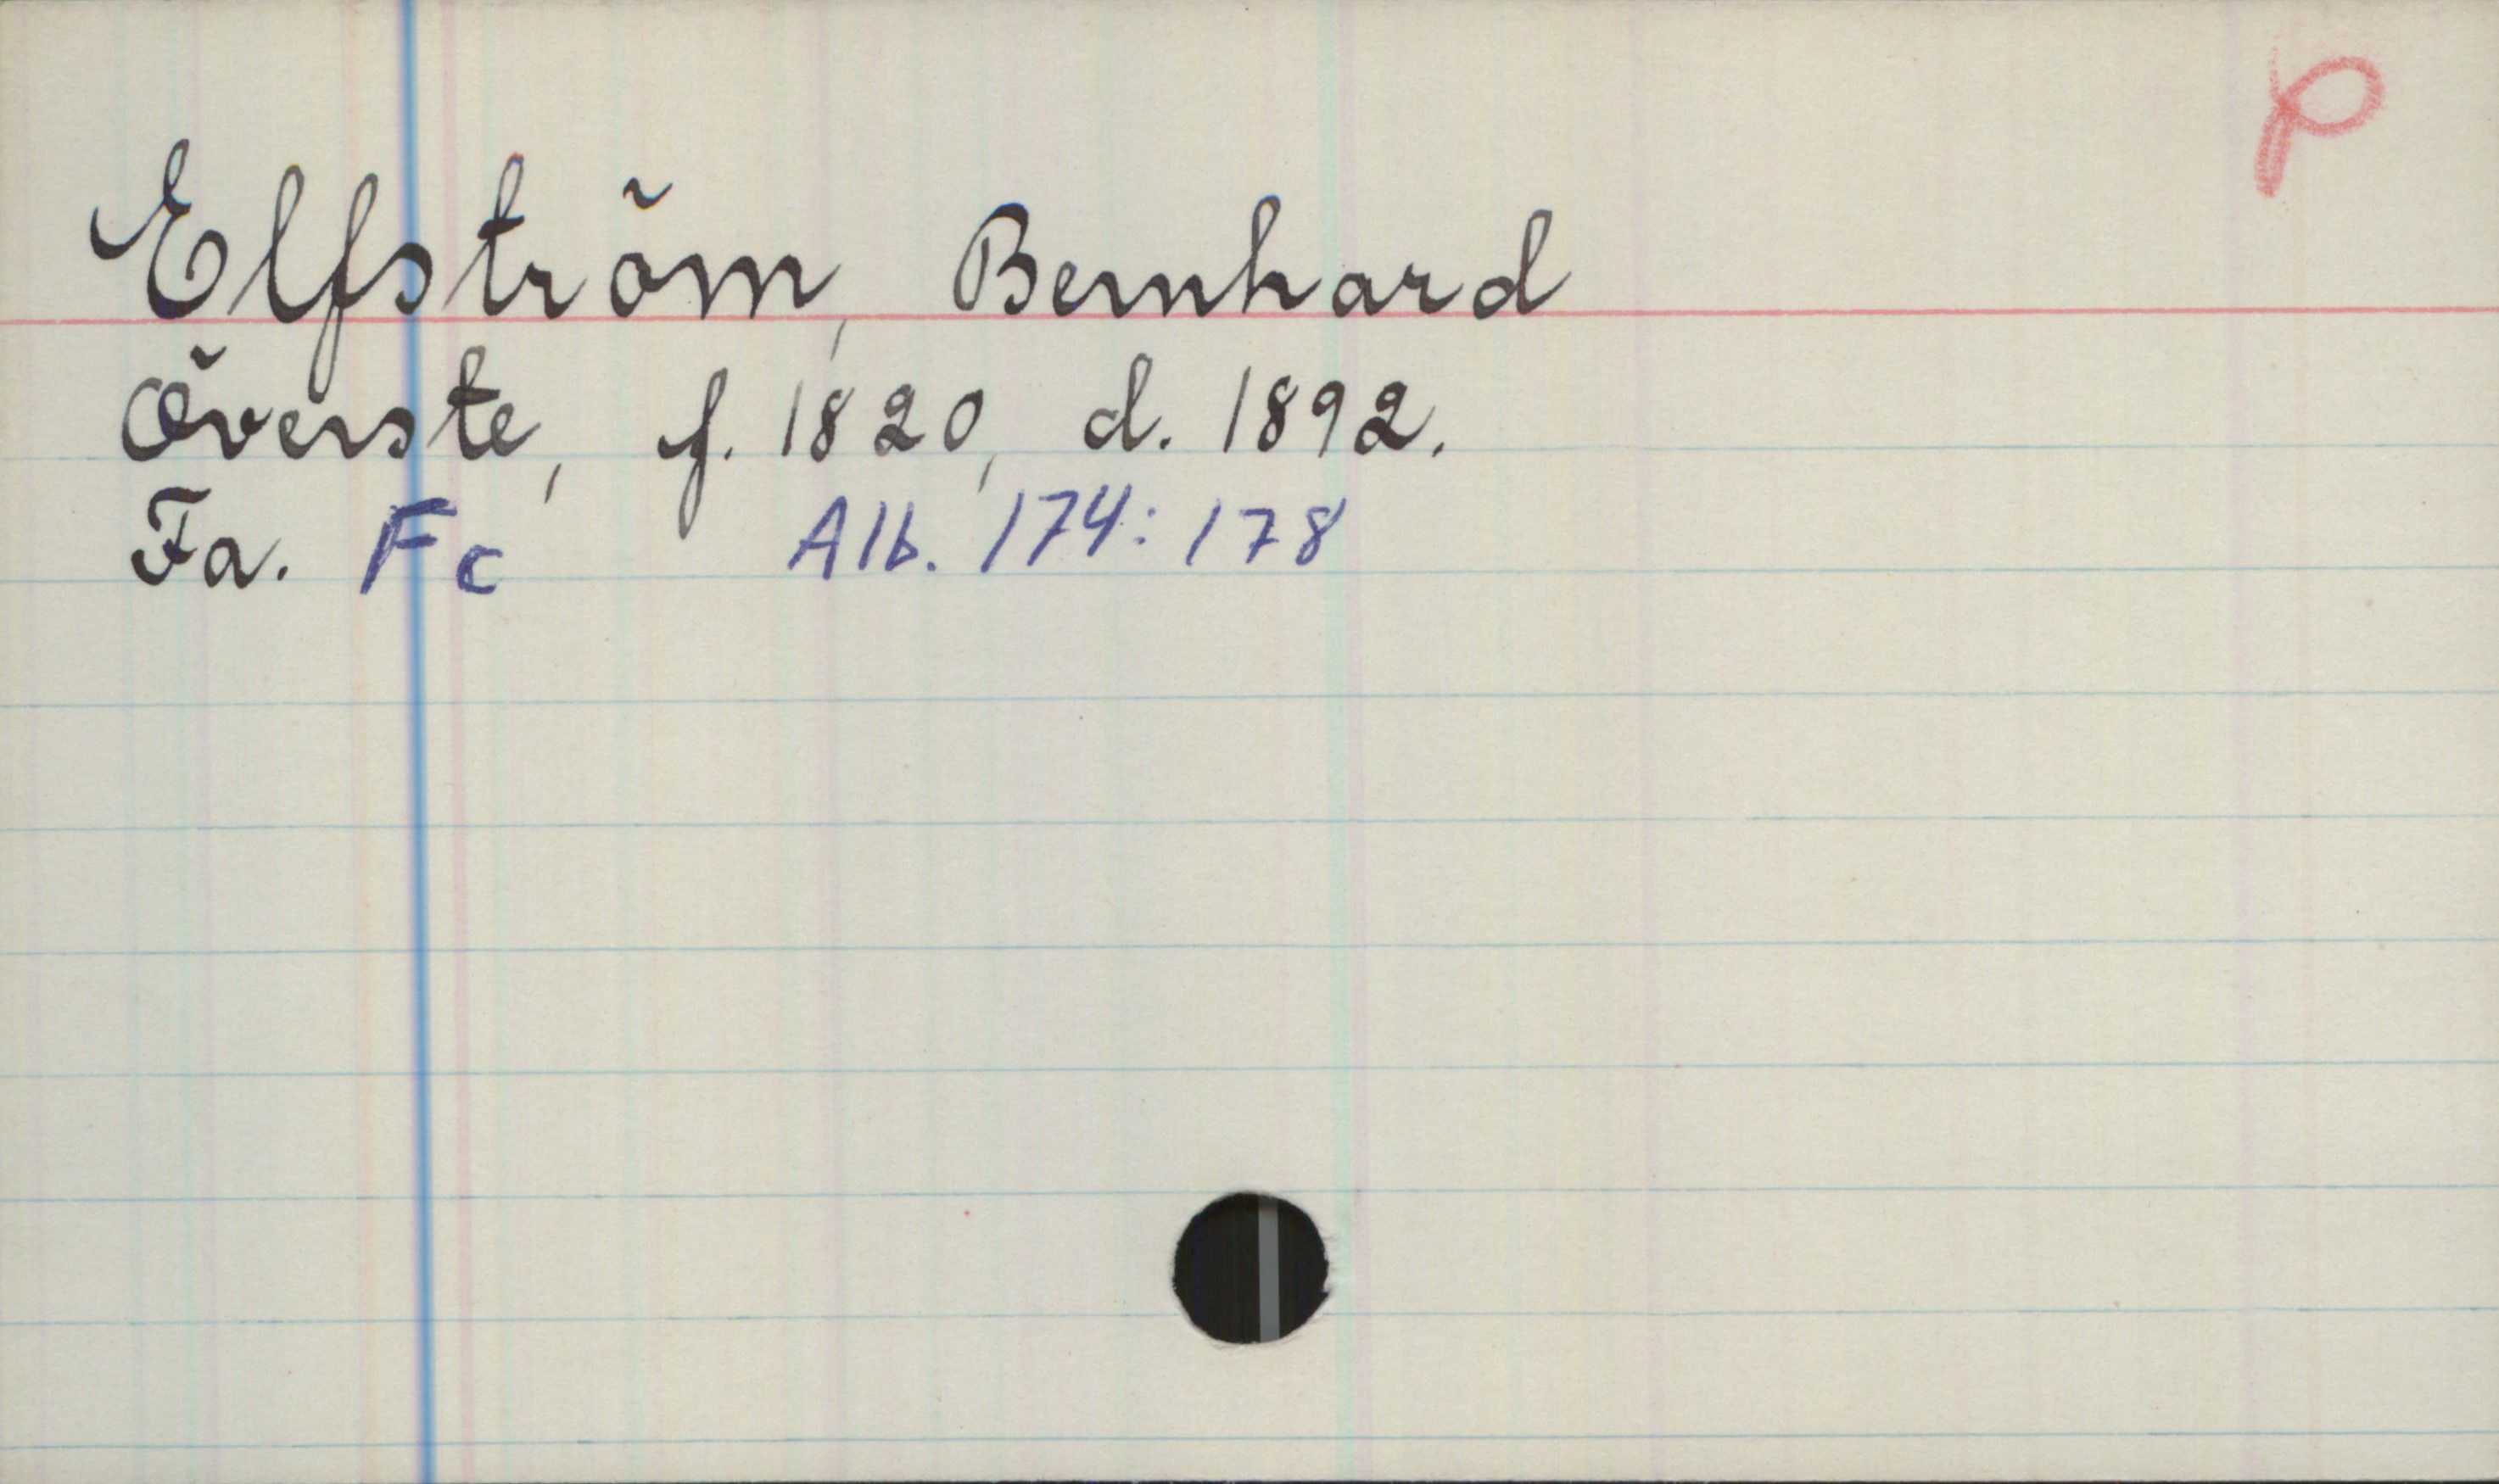 P
Elfström, Bernhard
Överste, f. 1820, d. 1892.
Fa. Fc Alb. 174:178